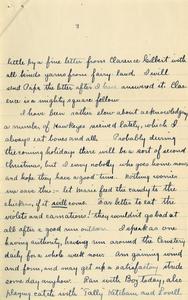 3
little by a fine letter from Clarence Gilbert with
all kinds yarns from fairy land. I will
send Papa the letter after I have answered it. Clar-
ence is a mighty square fellow.
I have been rather slow about acknowledging
a number of Hawkeyes received lately, which I
always eat bones and all. Probably during
the coming holidays there will be a sort of second
Christmas, but I envy nobody who goes home now
and hope they have a good time. Nothing worries
me save the — let Marie feed the candy to the
chickens, if it will come. I as better to eat the
violets and carnations! They wouldn't go bad at
all after a good run outdoor. I speak as one
having authority, having run around the Cemetery
daily for a whole week now. Am gaining wind
and form, and may get up a satisfactory stride
some day maybe. Ran with Boz today; also
playing catch with Tally, Ketcham and Lovell.